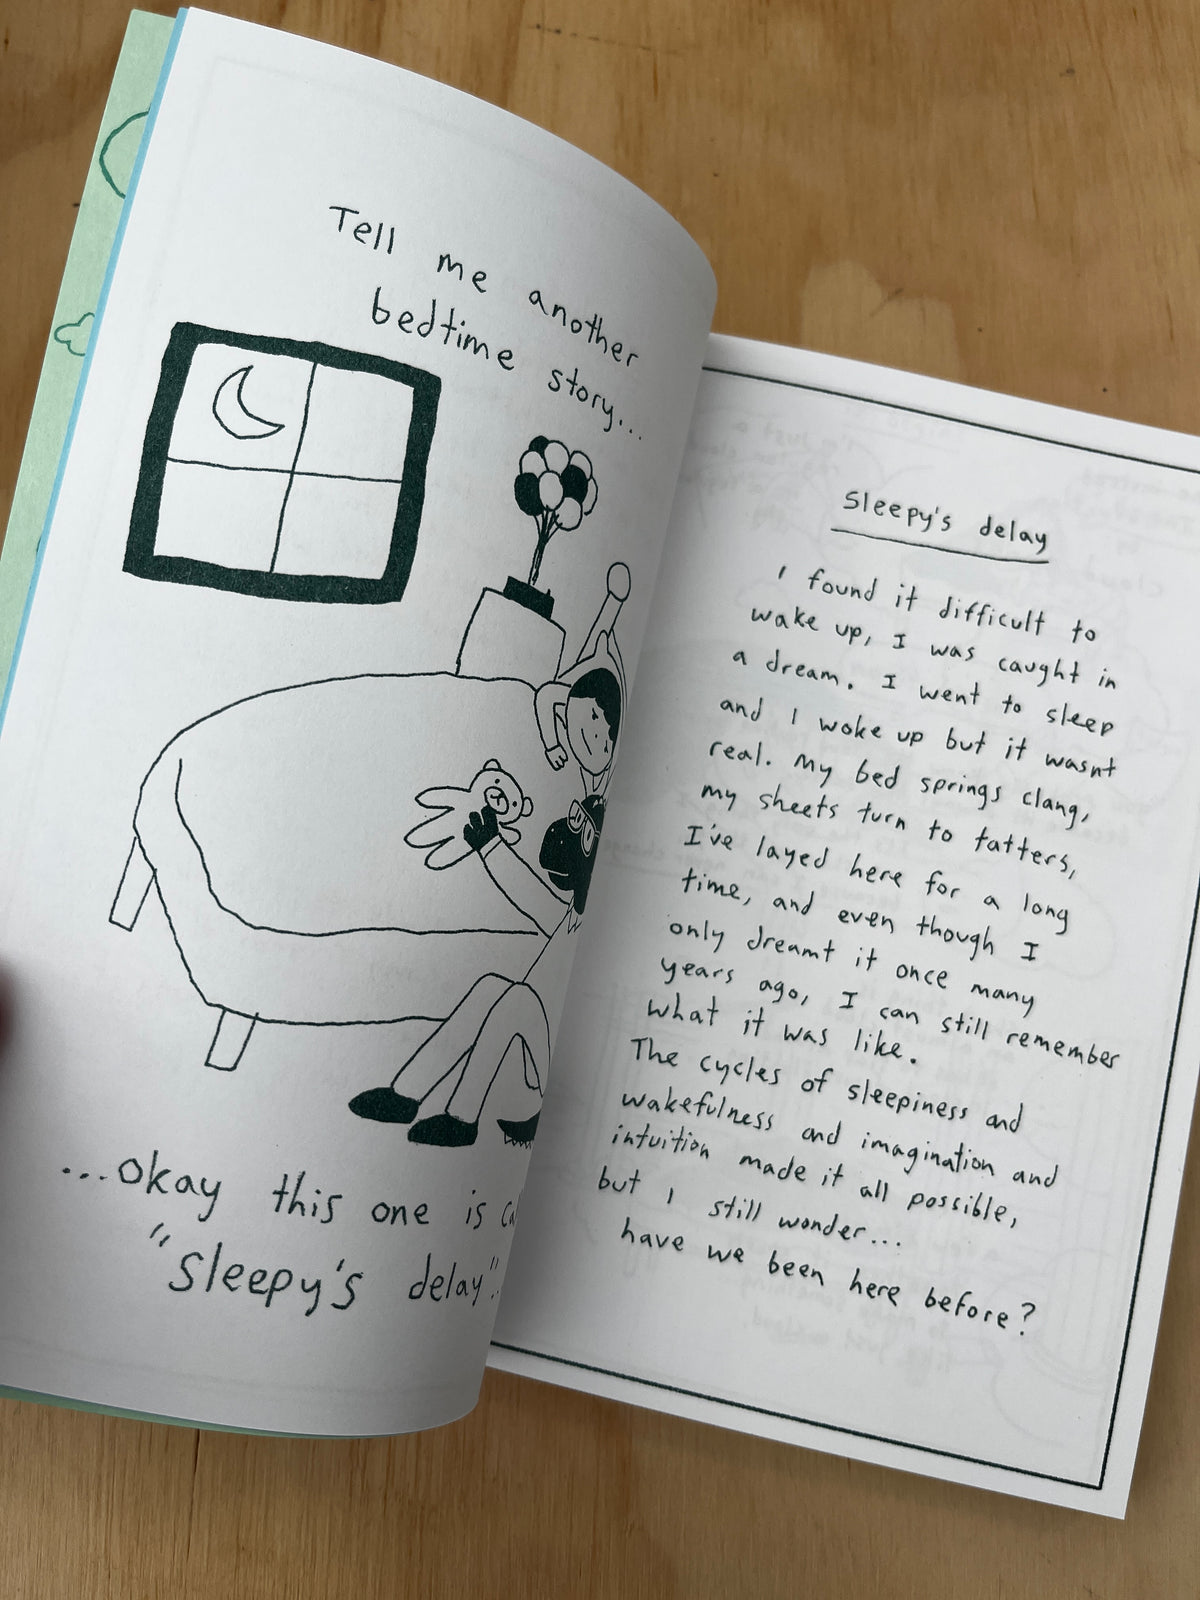 Tell me another
bedtime story...
...okay this one is
"Sleepy's delay".
Sleepy's delay
I found it difficult to
wake up, I was caught in
a dream. I went to sleep
and I woke up but it wasnt
real. My bed springs clang,
my sheets turn to tatters,
I've layed here for a long
time, and even though I
only dreamt it once many
years ago, I can still remember
what it was like.
The cycles of sleepiness and
wakefulness and imagination and
intuition made it all possible,
but I still wonder...
have we been here before?